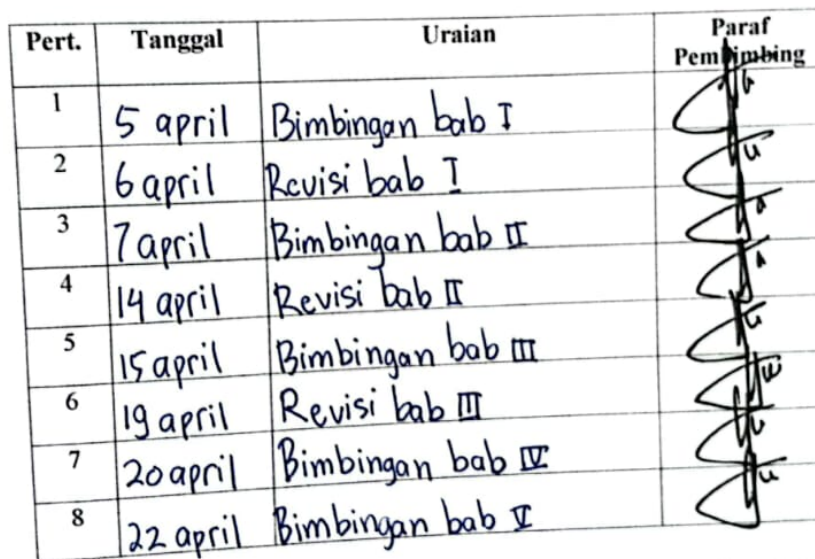 Pert. Tanggal Uraian Paraf Pembimbing
1 5 april Bimbingan bab I
2 6 april Revisi bab I
3 7 april Bimbingan bab II
4 14 april Revisi bab II
5 15 april Bimbingan bab III
6 19 april Revisi bab III
7 20 april Bimbingan bab IV
8 22 april Bimbingan bab V